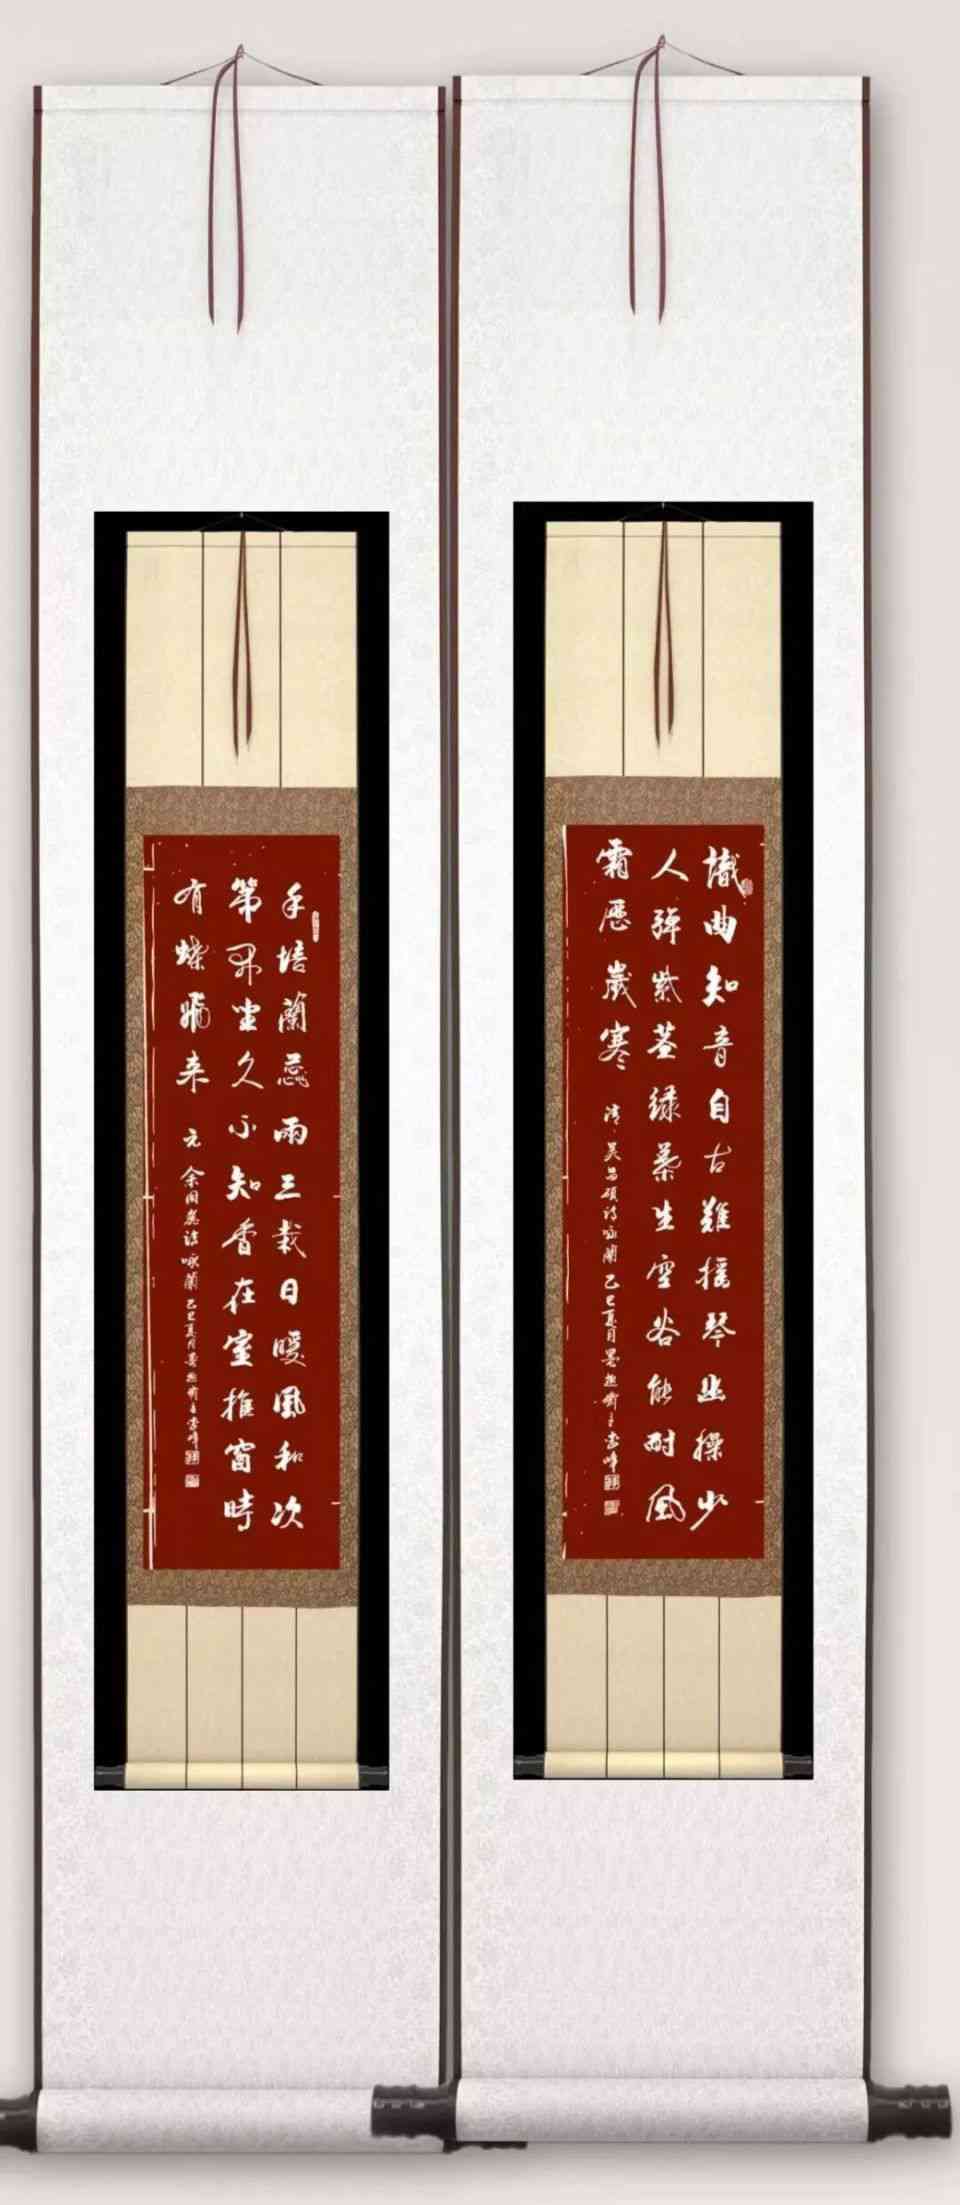 識曲知音自古難瑤琴幽操少
人彈紫莖綠葉生空谷能耐風
霜歷歲寒 清 吳昌碩詩詠蘭 乙巳夏月墨趣齋主常峰
手培蘭蕊兩三栽日暖風和次
第開坐久不知香在室推窗時
有蝶飛來 元 余同麓詩詠蘭 乙巳夏月墨趣齋主常峰